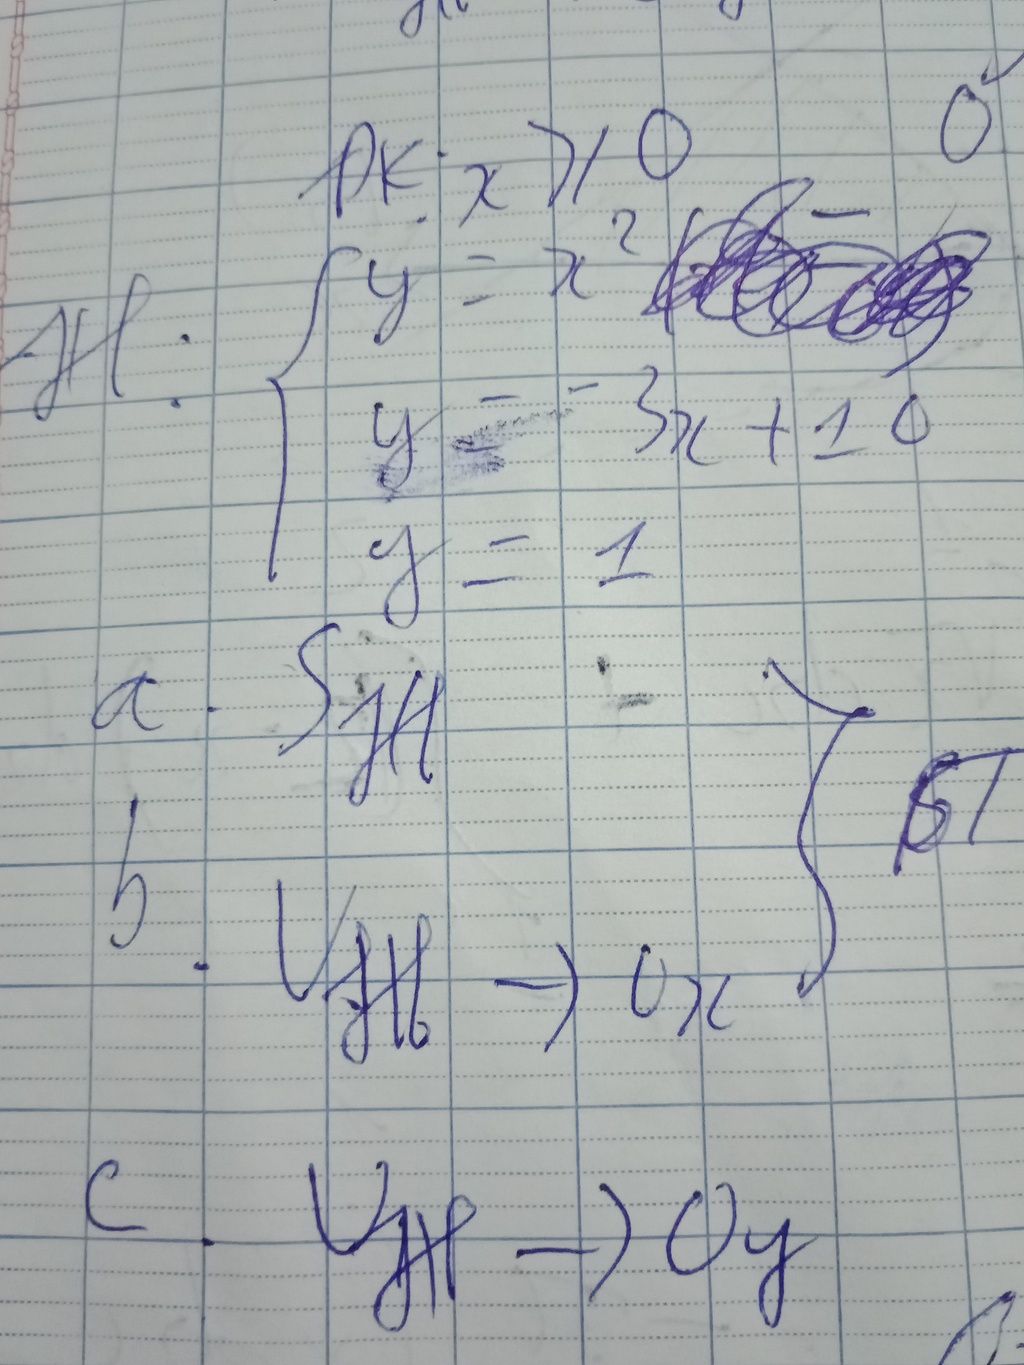 ĐK: x ⩾ 0
(H): { y = x²
y = -3x + 10
y = 1
a. S(H)
b. V(H) → Ox } BT
c. V(H) → Oy